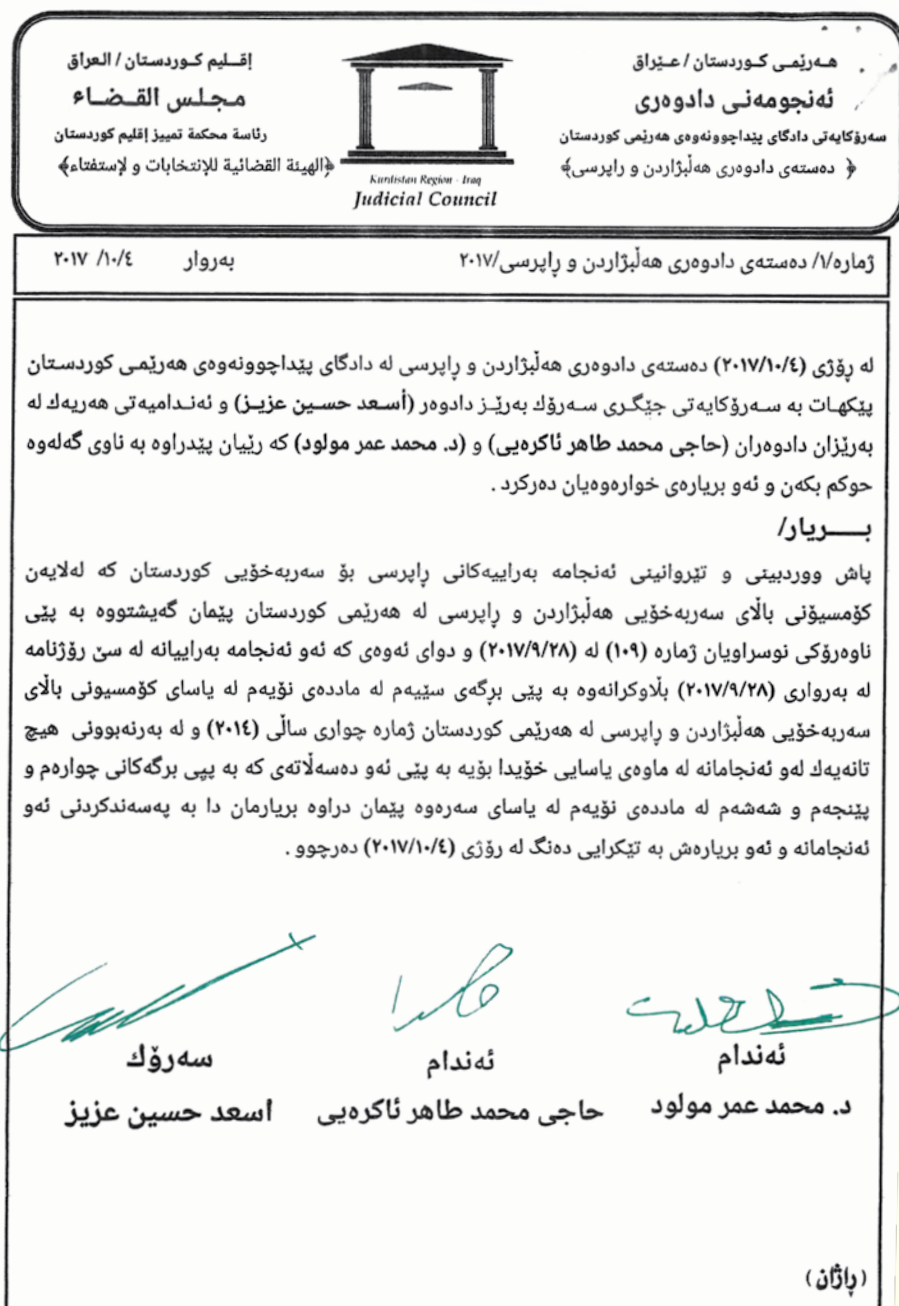 هـەرێمـی کـوردستان / عـێراق
ئەنجومەنـی دادوەری
سەرۆکایەتی دادگای پێداچوونەوەی هەرێمی کوردستان
﴿ دەستەی دادوەری هەڵبژاردن و ڕاپرسی﴾
إقــلیم کـوردستان / العراق
مـجلـس القـضــاء
رئاسة محكمة تمييز إقليم كوردستان
﴿الهيئة القضائية للإنتخابات و لإستفتاء﴾
Kurdistan Region - Iraq
Judicial Council
ژمارە/١/ دەستەی دادوەری هەڵبژاردن و ڕاپرسی/٢٠١٧ بەروار ٢٠١٧ /١٠/٤
لە ڕۆژی (٢٠١٧/١٠/٤) دەستەی دادوەری هەڵبژاردن و ڕاپرسی لە دادگای پێداچوونەوەی هەرێمـی کوردستـان
پێکهـات بە سـەرۆکایەتی جێگـری سـەرۆك بەرێـز دادوەر (أسـعد حسـین عزیـز) و ئەنـدامیەتی هەریەك لە
بەرێزان دادوەران (حاجی محمد طاهر ئاکرەیی) و (د. محمد عمر مولود) کە رێیان پێدراوە بە ناوی گەلەوە
حوکم بکەن و ئەو بریارەی خوارەوەیان دەرکرد .
بـــــریار/
پاش ووردبینی و تێروانینی ئەنجامە بەراییەکانی ڕاپرسی بۆ سەربەخۆیی کوردستان کە لەلایەن
کۆمسیۆنی باڵای سەربەخۆیی هەڵبژاردن و ڕاپرسی لە هەرێمی کوردستان پێمان گەیشتووە بە پێی
ناوەرۆکی نوسراویان ژمارە (١٠٩) لە (٢٠١٧/٩/٢٨) و دوای ئەوەی کە ئەو ئەنجامە بەراییانە لە سێ رۆژنامە
لە بەرواری (٢٠١٧/٩/٢٨) بڵاوکرانەوە بە پێی برگەی سێیەم لە ماددەی نۆیەم لە یاسای کۆمسیونی باڵای
سەربەخۆیی هەڵبژاردن و ڕاپرسی لە هەرێمی کوردستان ژمارە چواری ساڵی (٢٠١٤) و لە بەرنەبوونی هیچ
تانەیەك لەو ئەنجامانە لە ماوەی یاسایی خۆیدا بۆیە بە پێی ئەو دەسەڵاتەی کە بە پیی برگەکانی چوارەم و
پێنجەم و شەشەم لە ماددەی نۆیەم لە یاسای سەرەوە پێمان دراوە بریارمان دا بە پەسەندکردنی ئەو
ئەنجامانە و ئەو بریارەش بە تێکرایی دەنگ لە رۆژی (٢٠١٧/١٠/٤) دەرچوو .
ئەندام ئەندام سەرۆك
د. محمد عمر مولود حاجی محمد طاهر ئاکرەیی اسعد حسین عزیز
(ڕاژان)